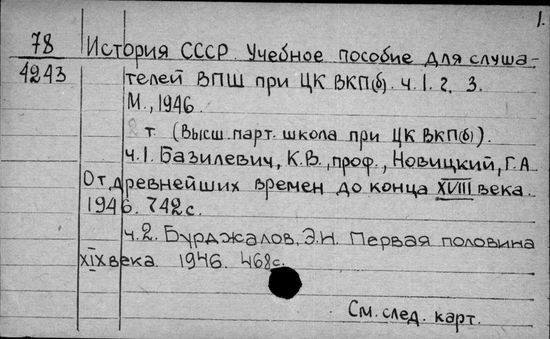 1.
78
4243
История СССР. Учебное пособие для слуша-
телей ВПШ при ЦК ВКП(б). ч. 1. 2. 3.
М., 1946.
2 т. (Высш. парт. школа при ЦК ВКП(б)).
ч. 1. Базилевич, К.В., проф., Новицкий, Г.А.
От древнейших времен до конца XVIII века.
1946. 742 с.
ч. 2. Бурджалов, Э.Н. Первая половина
XIX века. 1946. 468 с.
См. след. карт.